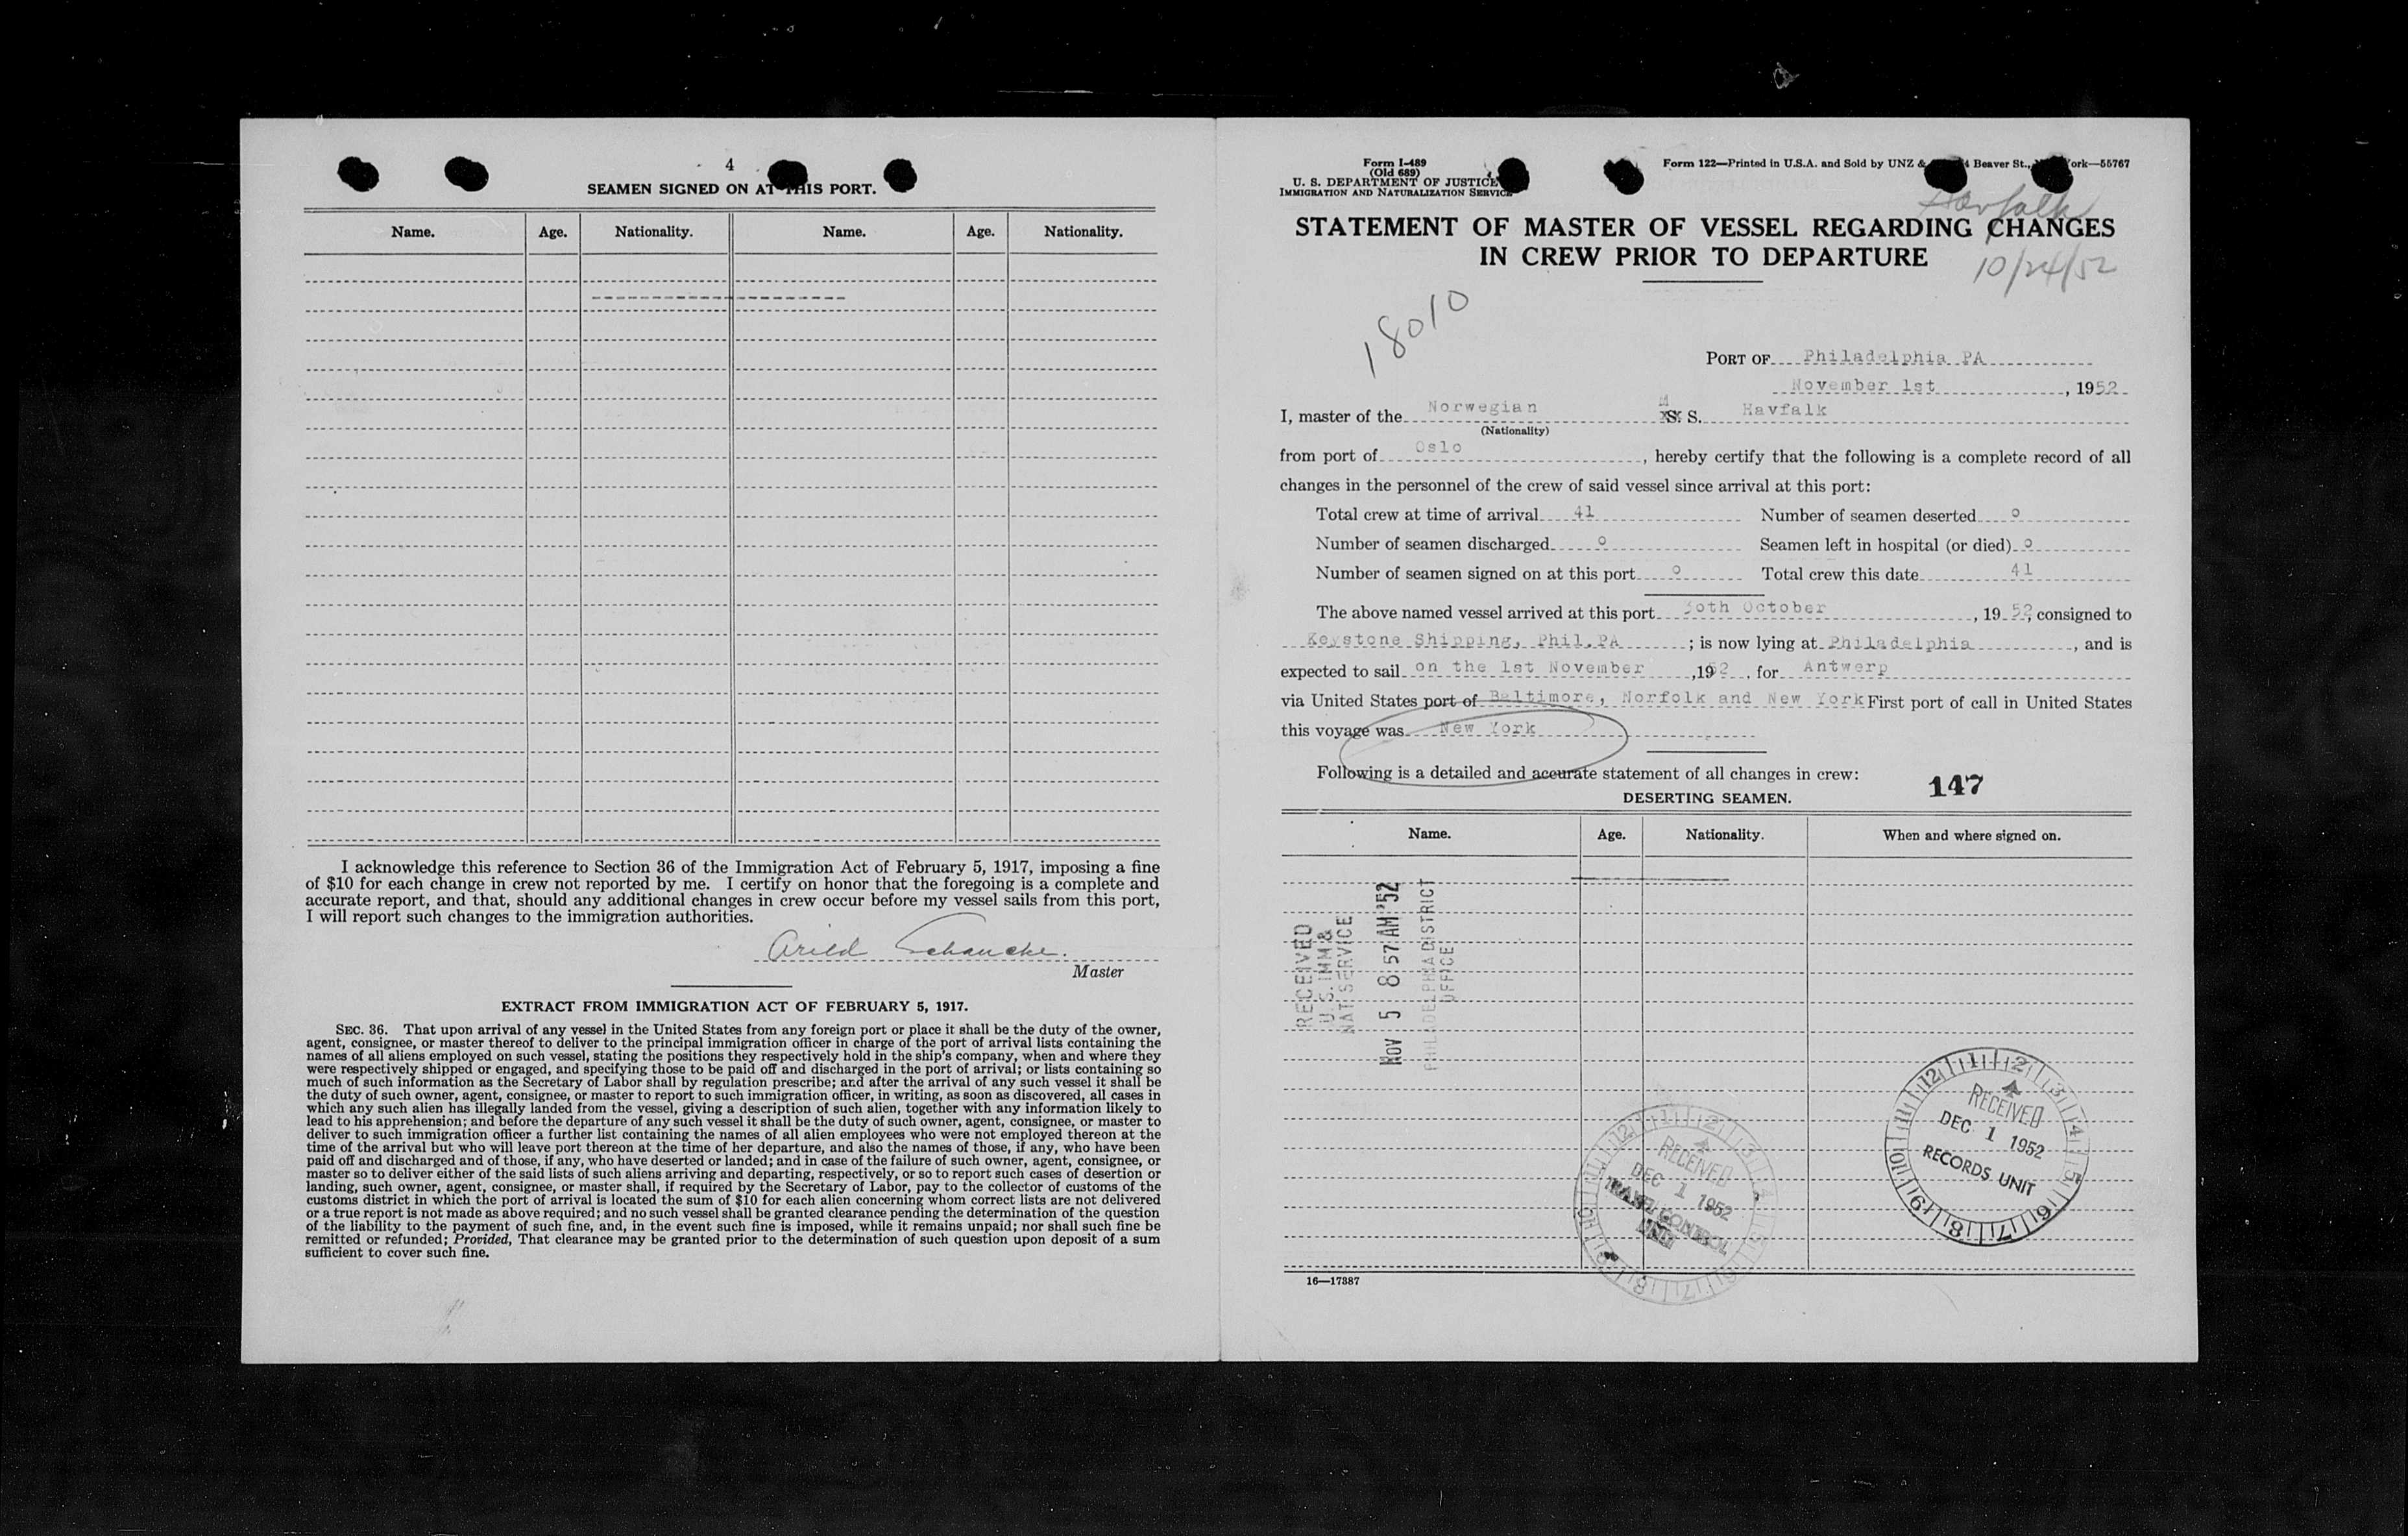 4
SEAMEN SIGNED ON AT THIS PORT.
Name. Age. Nationality. Name. Age. Nationality.
I acknowledge this reference to Section 36 of the Immigration Act of February 5, 1917, imposing a fine
of $10 for each change in crew not reported by me. I certify on honor that the foregoing is a complete and
accurate report, and that, should any additional changes in crew occur before my vessel sails from this port,
I will report such changes to the immigration authorities.
Arild Schancke.
Master
EXTRACT FROM IMMIGRATION ACT OF FEBRUARY 5, 1917.
SEC. 36. That upon arrival of any vessel in the United States from any foreign port or place it shall be the duty of the owner,
agent, consignee, or master thereof to deliver to the principal immigration officer in charge of the port of arrival lists containing the
names of all aliens employed on such vessel, stating the positions they respectively hold in the ship's company, when and where they
were respectively shipped or engaged, and specifying those to be paid off and discharged in the port of arrival; or lists containing so
much of such information as the Secretary of Labor shall by regulation prescribe; and after the arrival of any such vessel it shall be
the duty of such owner, agent, consignee, or master to report to such immigration officer, in writing, as soon as discovered, all cases in
which any such alien has illegally landed from the vessel, giving a description of such alien, together with any information likely to
lead to his apprehension; and before the departure of any such vessel it shall be the duty of such owner, agent, consignee, or master to
deliver to such immigration officer a further list containing the names of all alien employees who were not employed thereon at the
time of the arrival but who will leave port thereon at the time of her departure, and also the names of those, if any, who have been
paid off and discharged and of those, if any, who have deserted or landed; and in case of the failure of such owner, agent, consignee, or
master so to deliver either of the said lists of such aliens arriving and departing, respectively, or so to report such cases of desertion or
landing, such owner, agent, consignee, or master shall, if required by the Secretary of Labor, pay to the collector of customs of the
customs district in which the port of arrival is located the sum of $10 for each alien concerning whom correct lists are not delivered
or a true report is not made as above required; and no such vessel shall be granted clearance pending the determination of the question
of the liability to the payment of such fine, and, in the event such fine is imposed, while it remains unpaid; nor shall such fine be
remitted or refunded; Provided, That clearance may be granted prior to the determination of such question upon deposit of a sum
sufficient to cover such fine.
Form I-489
(Old 689)
U. S. DEPARTMENT OF JUSTICE
IMMIGRATION AND NATURALIZATION SERVICE
Form 122—Printed in U.S.A. and Sold by UNZ & Beaver St., ork—55767
STATEMENT OF MASTER OF VESSEL REGARDING CHANGES
IN CREW PRIOR TO DEPARTURE
10/24/52
18010
PORT OF Philadelphia PA
November 1st, 1952
I, master of the Norwegian M S. S. Havfalk
(Nationality)
from port of Oslo, hereby certify that the following is a complete record of all
changes in the personnel of the crew of said vessel since arrival at this port:
Total crew at time of arrival 41 Number of seamen deserted o
Number of seamen discharged o Seamen left in hospital (or died) o
Number of seamen signed on at this port o Total crew this date 41
The above named vessel arrived at this port 30th October, 1952, consigned to
Keystone Shipping, Phil.PA; is now lying at Philadelphia, and is
expected to sail on the 1st November, 1952, for Antwerp
via United States port of Baltimore, Norfolk and New York First port of call in United States
this voyage was New York
Following is a detailed and accurate statement of all changes in crew:
147
DESERTING SEAMEN.
Name. Age. Nationality. When and where signed on.
RECEIVED
U.S. IMM &
NAT SERVICE
NOV 5 8 57 AM '52
PHILADELPHIA DISTRICT
OFFICE
12 1 2 3 4 5 6 7 8 9 10 11
RECEIVED
DEC 1 1952
RECORDS UNIT
RECEIVED
DEC 1 1952
CONTROL
UNIT
16—17387